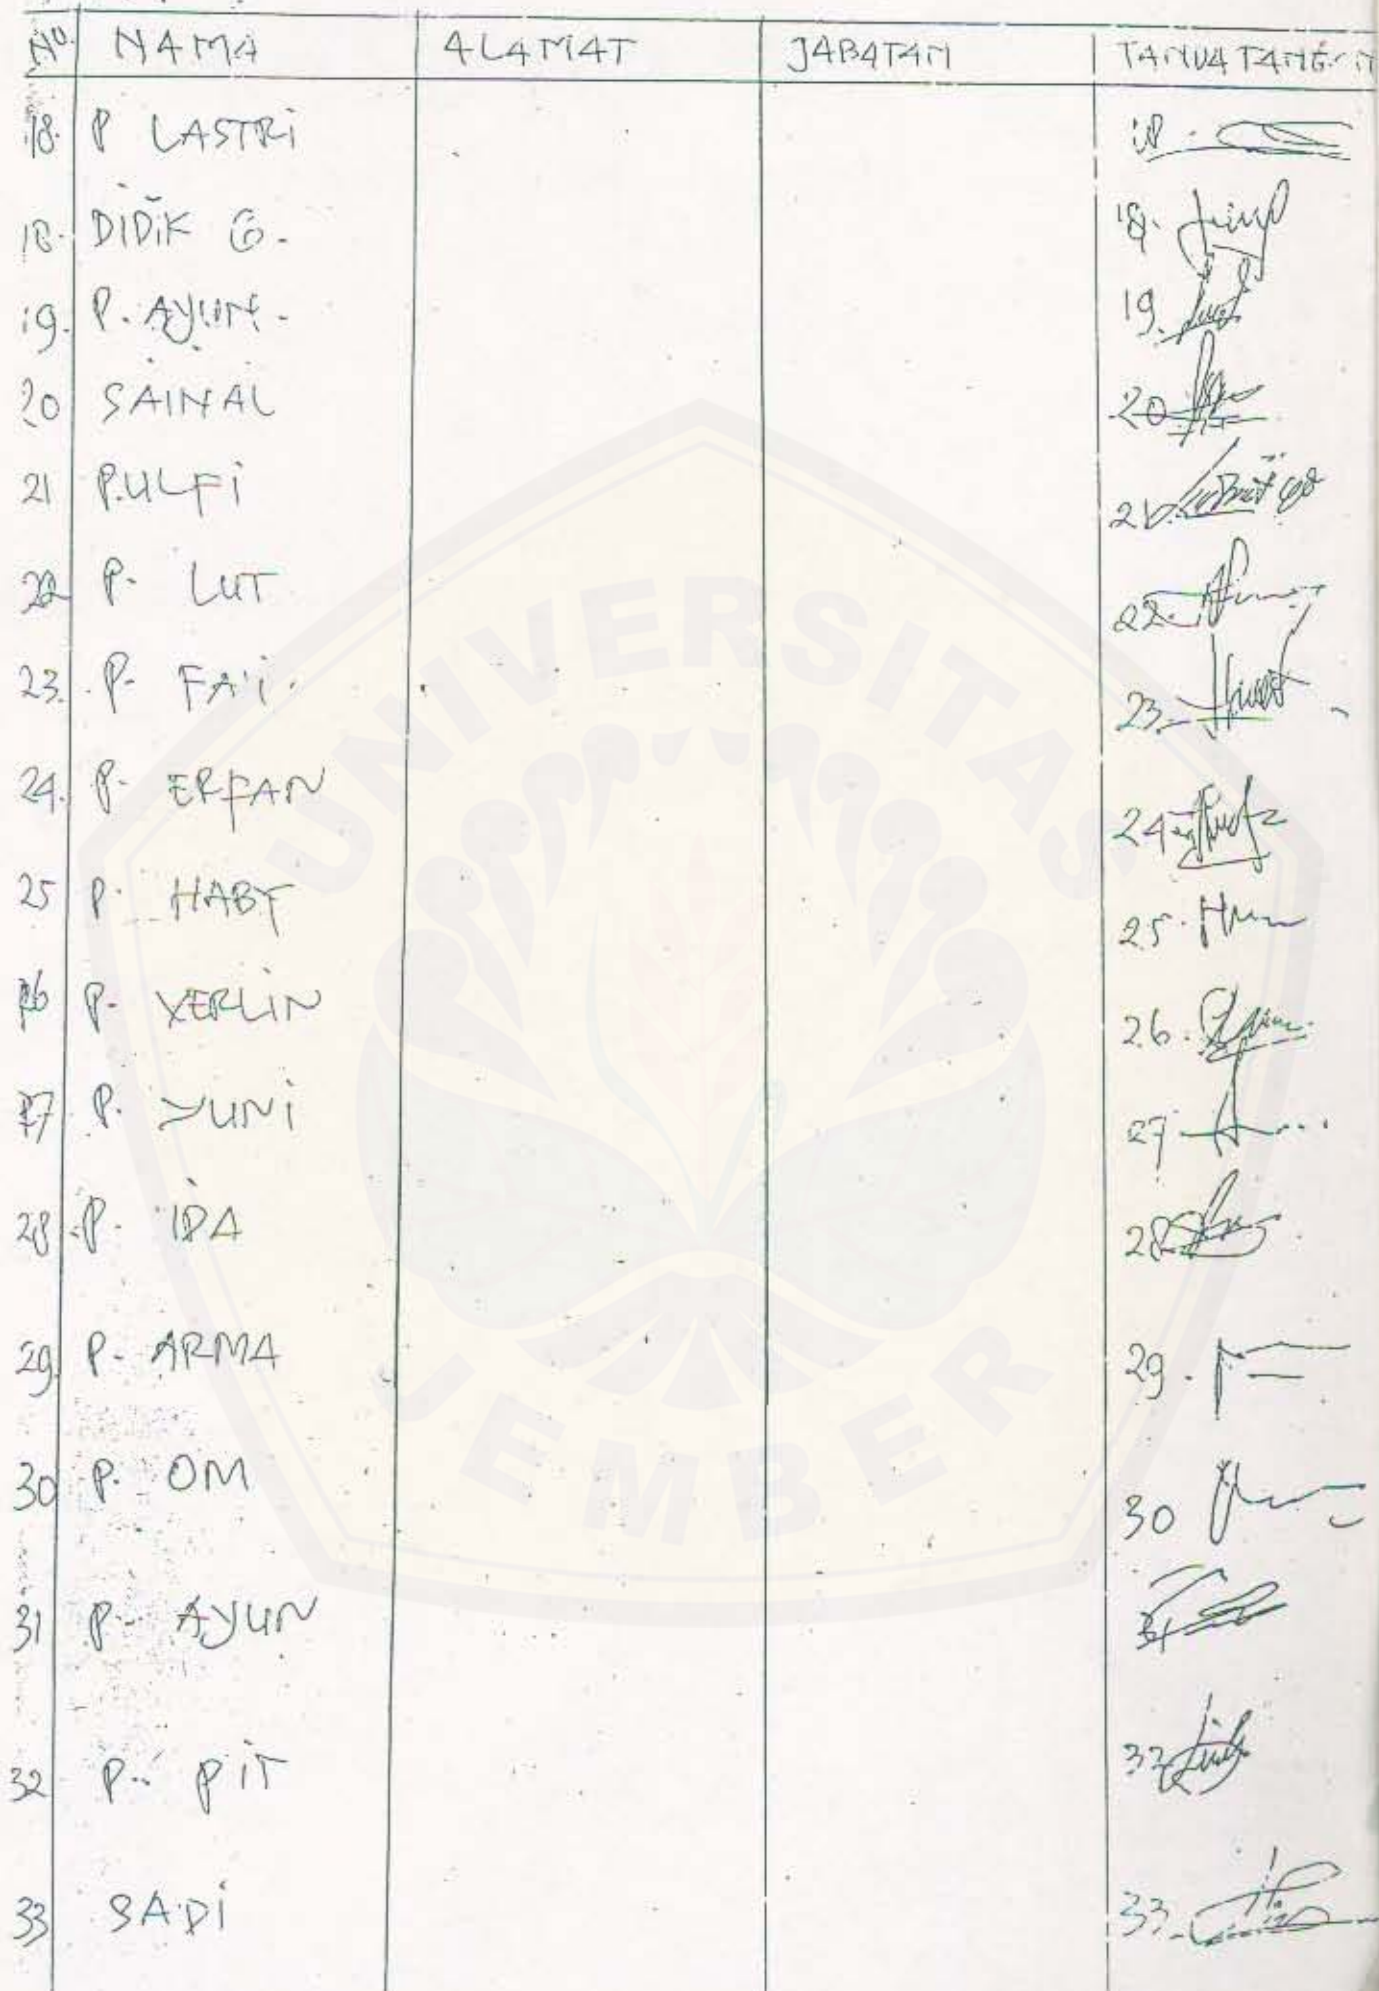 No. NAMA ALAMAT JABATAN TANDA TANGAN
18. P LASTRI 18.
18. DIDIK G. 18.
19. P. AYUN. 19.
20 SAINAL 20
21 P.ULFI 21
22 P. LUT 22.
23. P. FA'I. 23.
24. P. ERFAN 24
25 P. HABY 25.
26 P. YERLIN 26.
27 P. YUNI 27
28 P. IDA 28
29 P. ARMA 29.
30 P. OM 30
31 P. AYUN 31
32 P. PIT 32
33 SADI 33
UNIVERSITAS
JEMBER